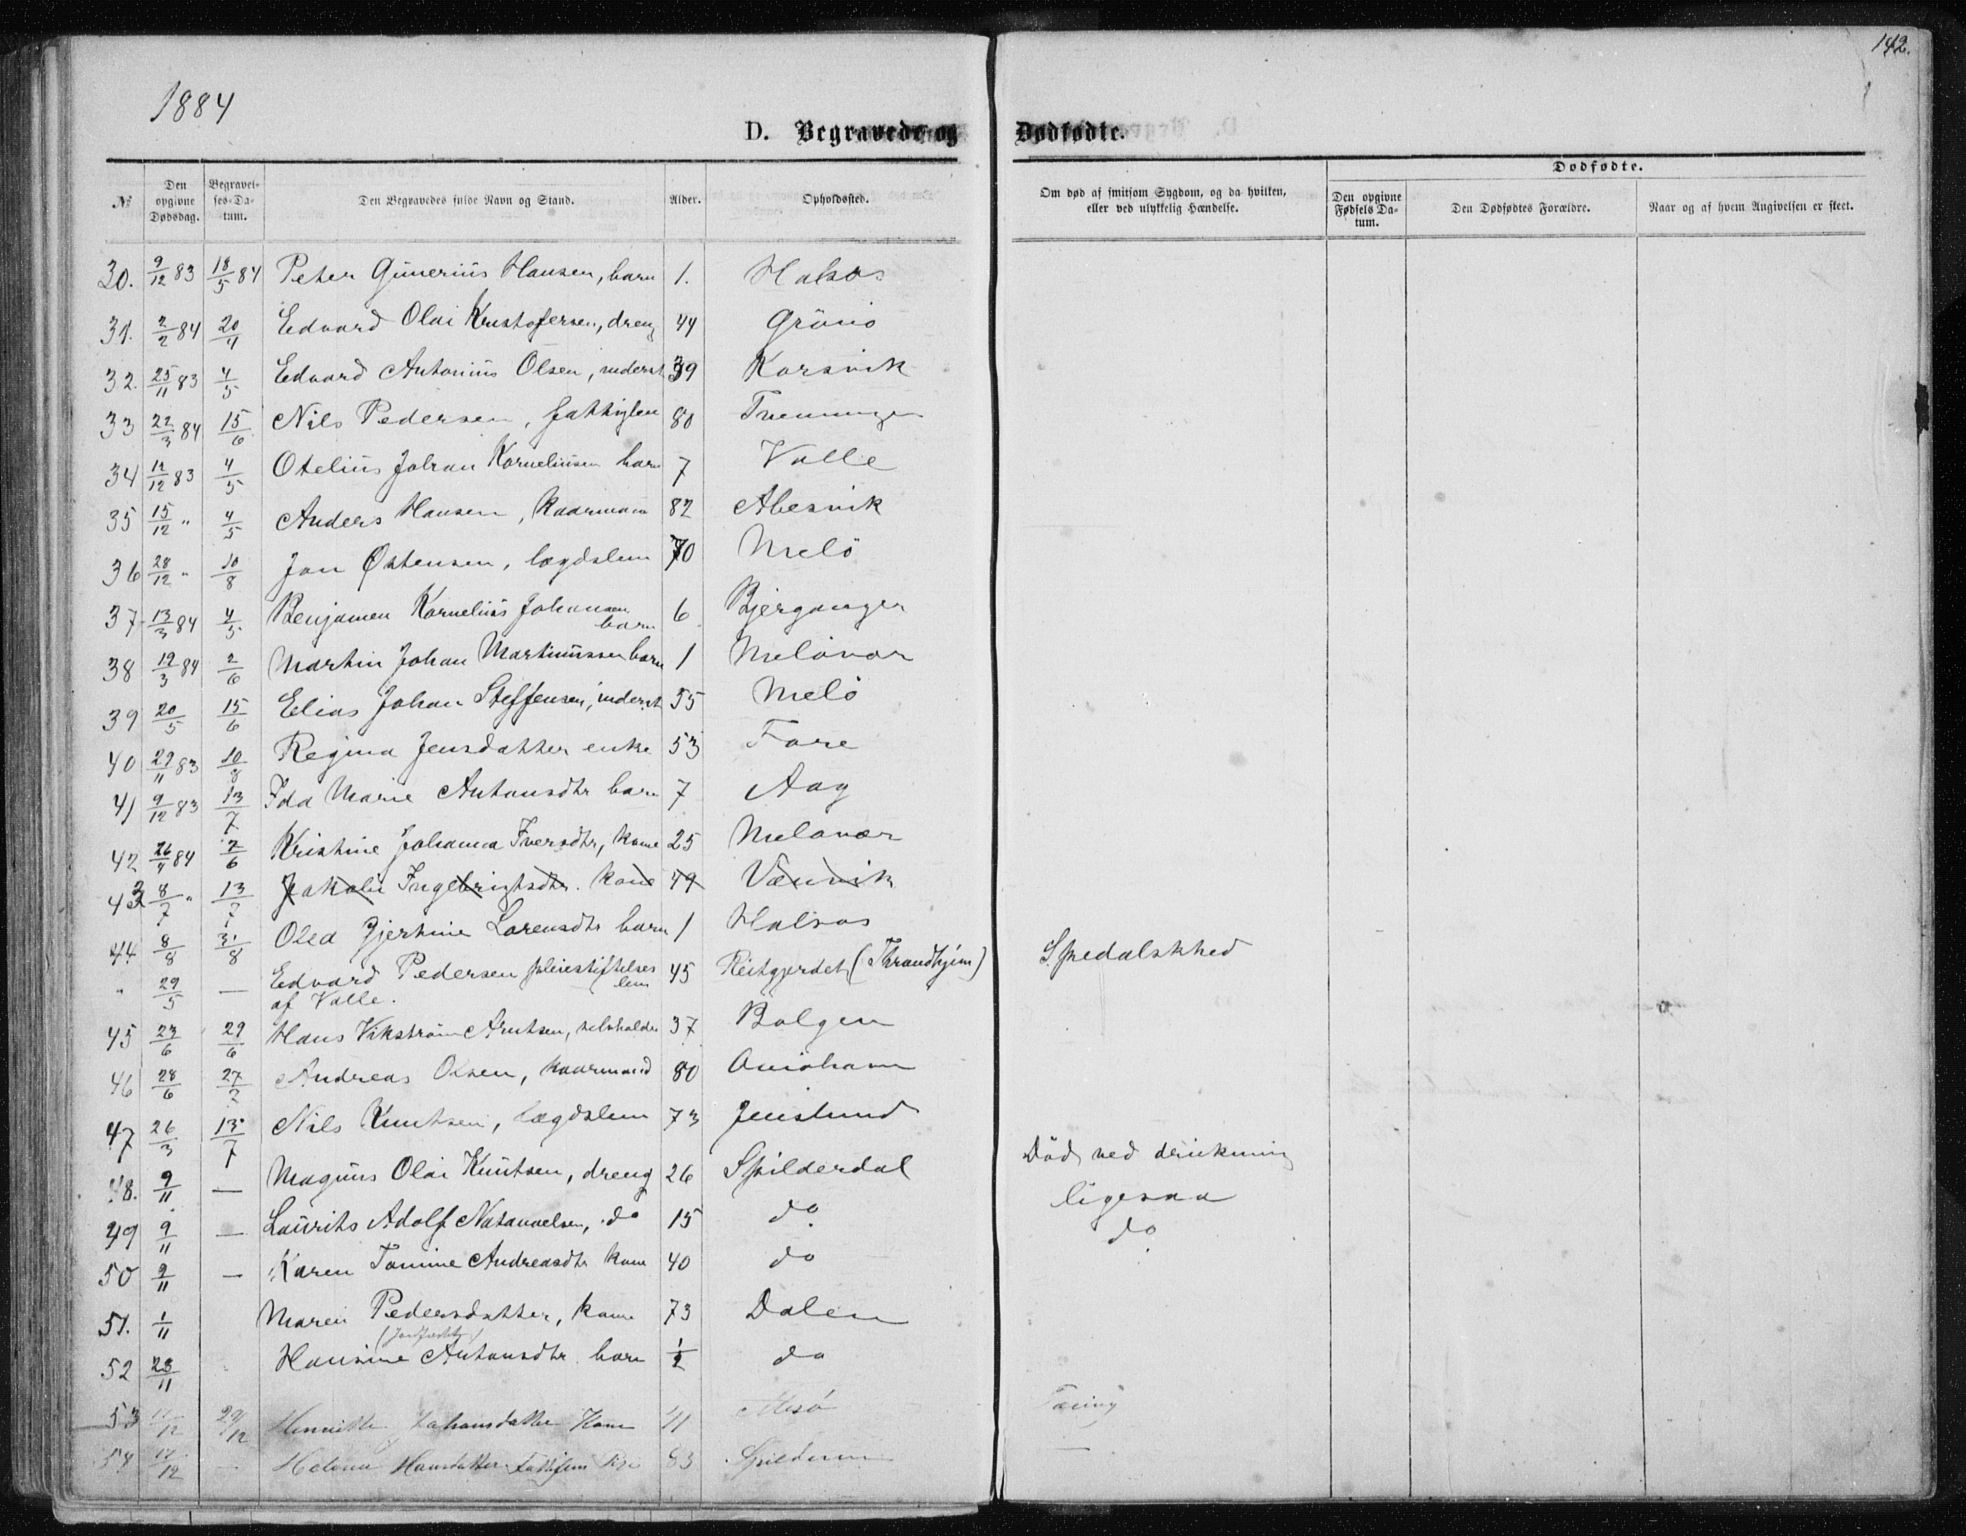 142.
1884
D. Begravede og Dødfødte.
№ Den opgivne Dødsdag. Begravelses-Datum. Den Begravedes fulde Navn og Stand. Alder. Opholdssted. Om død af smitsom Sygdom, og da hvilken, eller ved ulykkelig Hændelse. Dødfødte. Den opgivne Fødsels Datum. Den Dødfødtes Forældre. Naar og af hvem Angivelsen er skeet.
30. 9/12 83 18/5 84 Peter Gunerius Hansen, barn 1. Halsos
31. 2/2 84 20/4 Edvard Olai Kristofersen, dreng 44 Grönö
32. 25/11 83 4/5 Edvard Antonius Olsen, inderst 39 Korsvik
33 22/3 84 15/6 Nils Pedersen, fattiglem 80
34 12/12 83 4/5 Otelius Johan Korneliusen barn 7 Valle
35 15/12 " 4/5 Anders Hansen, Kaarmann 82 Abesvik
36 28/12 " 10/8 Jon Østensen, lægdslem 70 Melö
37 13/3 84 4/5 Benjamen Kornelius Johansen barn 6 Bjerganger
38 19/3 84 2/6 Martin Johan Martinussen barn 1 Melövær
39 20/5 15/6 Elias Johan Steffensen, inderst 55 Melö
40 29/11 83 10/8 Regina Jensdatter enke 53 Fore
41 9/12 83 13/7 Ida Marie Antonsdtr barn 7 Aag
42 26/4 84 2/6 Kristine Johanna Iversdtr, kone 25 Melövær
43 8/7 " 13/7 Jakolie Ingebrigtsdtr. kone 49 Vænnvik
44. 8/8 31/8 Olea Gjertine Lorensdtr barn 1 Halsos
" 29/5 — Edvard Pedersen pleiestiftelses lem af Valle. 45 Reitgjerdet (Throndhjem) Spedalskhed
45 23/6 29/6 Hans Vikstrøm Arntsen, selvholder 37 Bolgen
46 28/6 27/7 Andreas Olsen, kaarmand 80
47 26/3 13/7 Nils Knutsen, lægdslem 73 Jenslund
48. 9/11 — Magnus Olai Knutsen, dreng 26 Spilderdal Död ved drukning
49 9/11 — Laurits Adolf Natanaelsen, do 15 do ligesaa
50 9/11 — Karen Tomine Andreasdtr kone 40 do do
51. 1/11 Maren Pedersdatter, kone 73 Dalen
52 23/11 Hansine Antonsdtr. barn 1/2 do
53 /12 29/12 Johansdatter Kone 41 Mesö Tæring
54 /12 — Helena Hansdatter Fattiglem 83